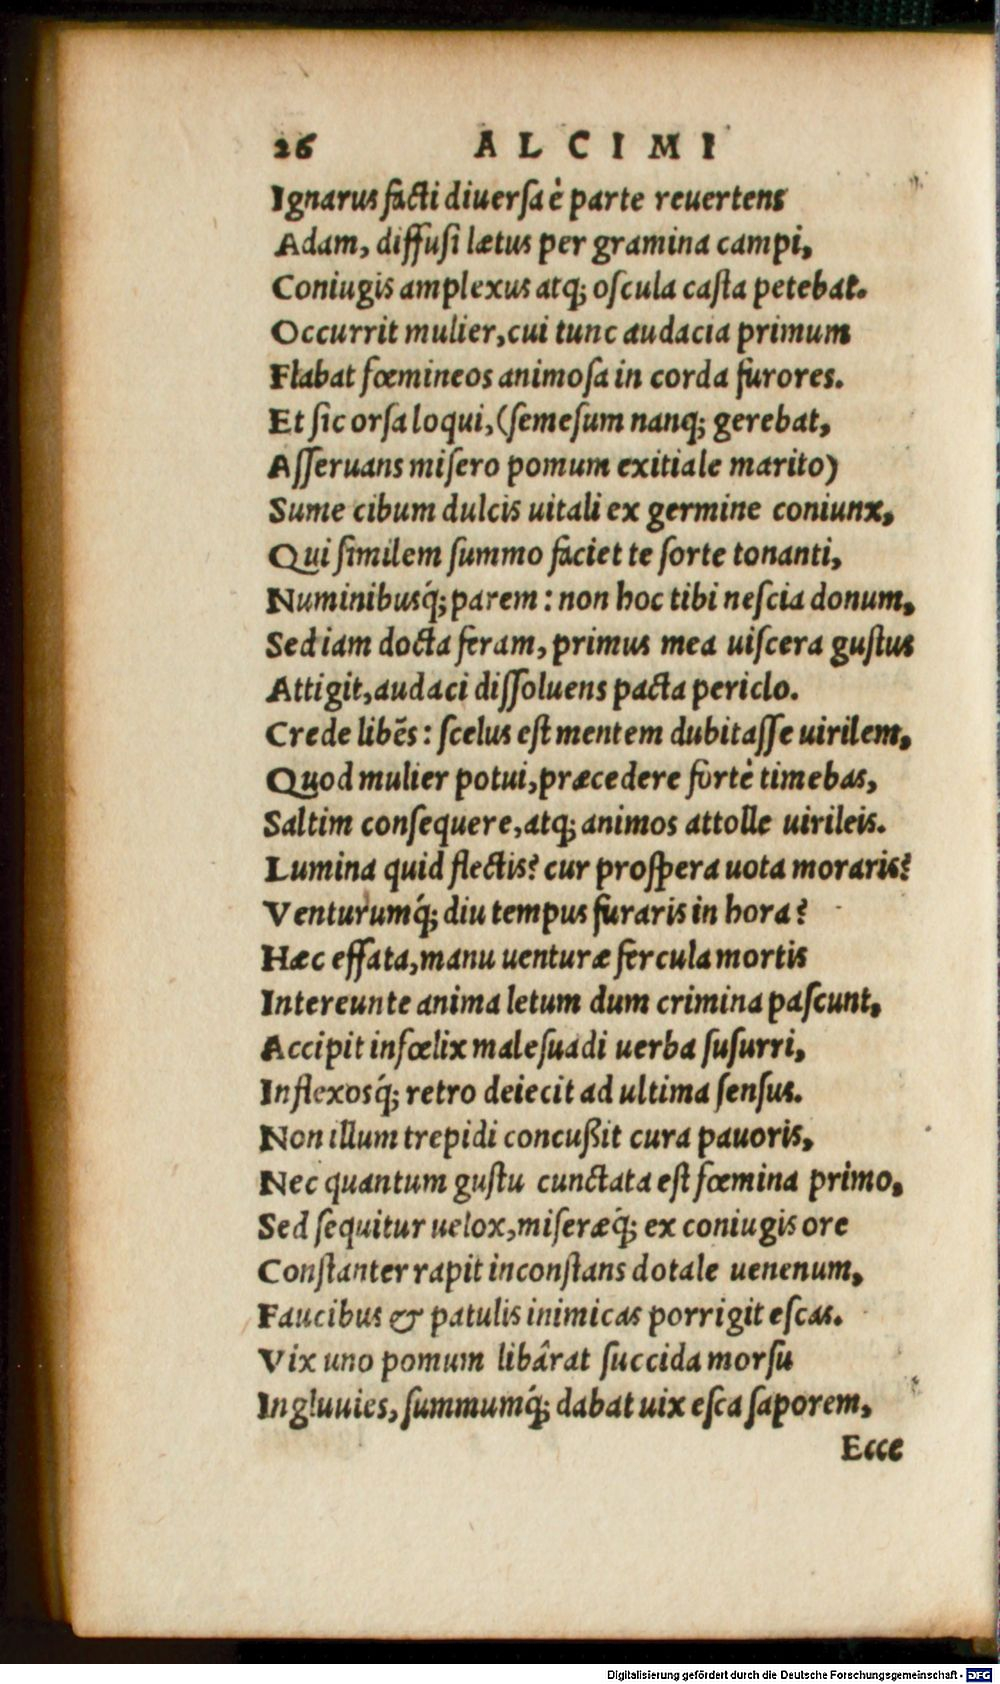 26 ALCIMI
Ignarus facti diuersa è parte reuertens
Adam, diffusi lætus per gramina campi,
Coniugis amplexus atq; oscula casta petebat.
Occurrit mulier, cui tunc audacia primum
Flabat fœmineos animosa in corda furores.
Et sic orsa loqui, (semesum nanq; gerebat,
Asseruans misero pomum exitiale marito)
Sume cibum dulcis uitali ex germine coniunx,
Qui similem summo faciet te sorte tonanti,
Numinibusq́; parem : non hoc tibi nescia donum,
Sed iam docta feram, primus mea uiscera gustus
Attigit, audaci dissoluens pacta periclo.
Crede libẽs : scelus est mentem dubitasse uirilem,
Quod mulier potui, præcedere fortè timebas,
Saltim consequere, atq; animos attolle uirileis.
Lumina quid flectis? cur prospera uota moraris?
Venturumq́; diu tempus furaris in hora?
Hæc effata, manu uenturæ fercula mortis
Intereunte anima letum dum crimina pascunt,
Accipit infœlix malesuadi uerba susurri,
Inflexosq́; retro deiecit ad ultima sensus.
Non illum trepidi concußit cura pauoris,
Nec quantum gustu cunctata est fœmina primo,
Sed sequitur uelox, miseræq́; ex coniugis ore
Constanter rapit inconstans dotale uenenum,
Faucibus & patulis inimicas porrigit escas.
Vix uno pomum libârat succida morsu
Ingluuies, summumq́; dabat uix esca saporem,
Ecce
Digitalisierung gefördert durch die Deutsche Forschungsgemeinschaft - DFG